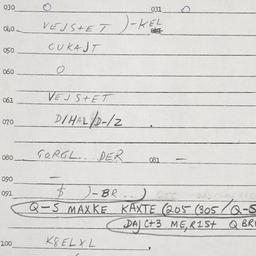 030 0 031 0
040 VEJSTET )-KEL
050 CUKAJT
060 0
061 VEJSTET
070 D/HAL/D-/Z
080 GORGL.. DER 081 -
090 -
091 $ )-BR..)
Q-S MAXKE KAXTE (205 (305/Q-S
DAJC+3 ME,R1St Q BR
100 K8ELXL